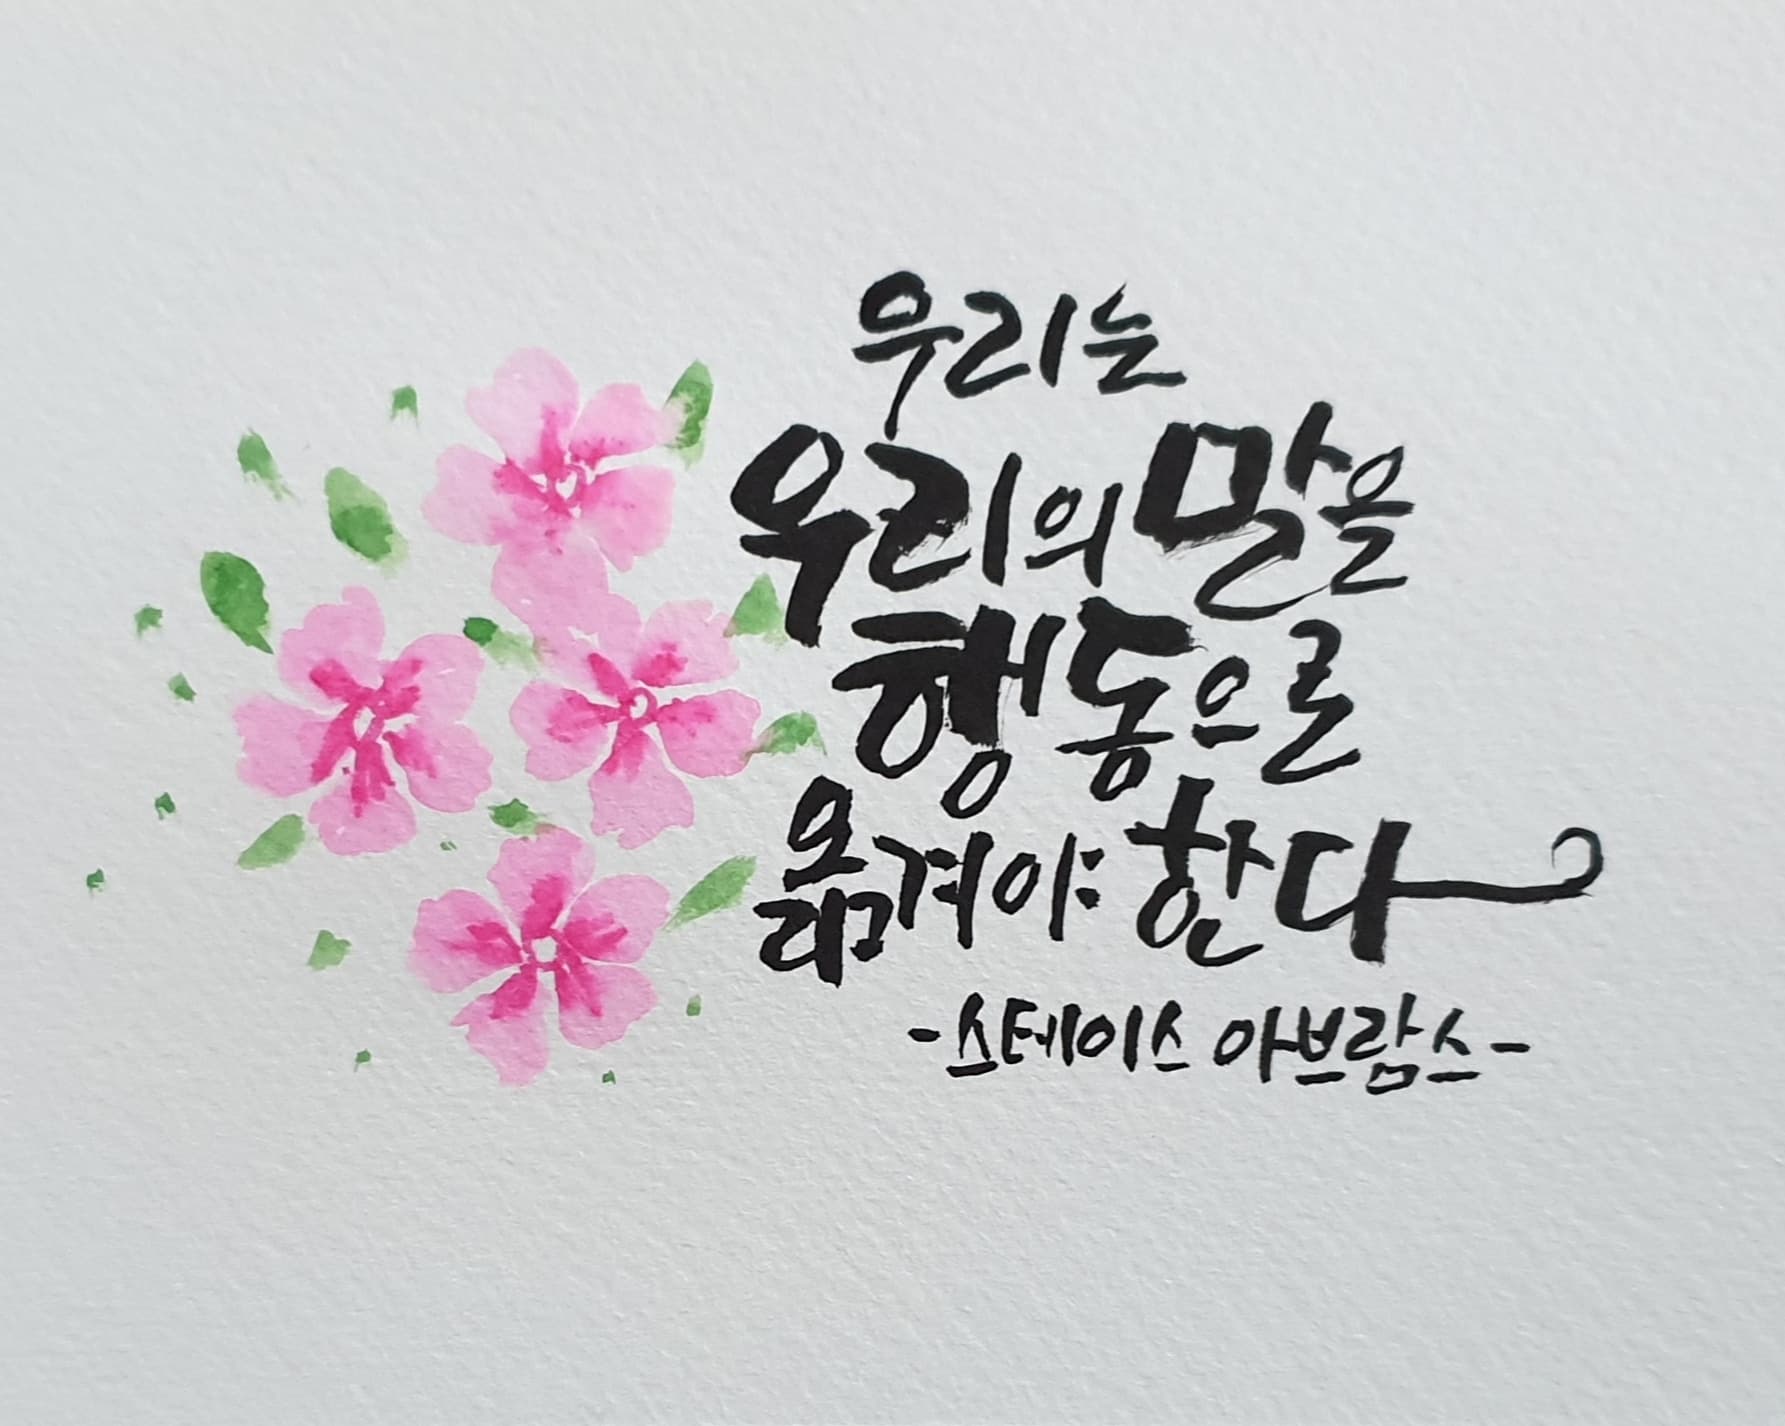 우리는
우리의 말을
행동으로
옮겨야 한다
-스테이스 아브람스-